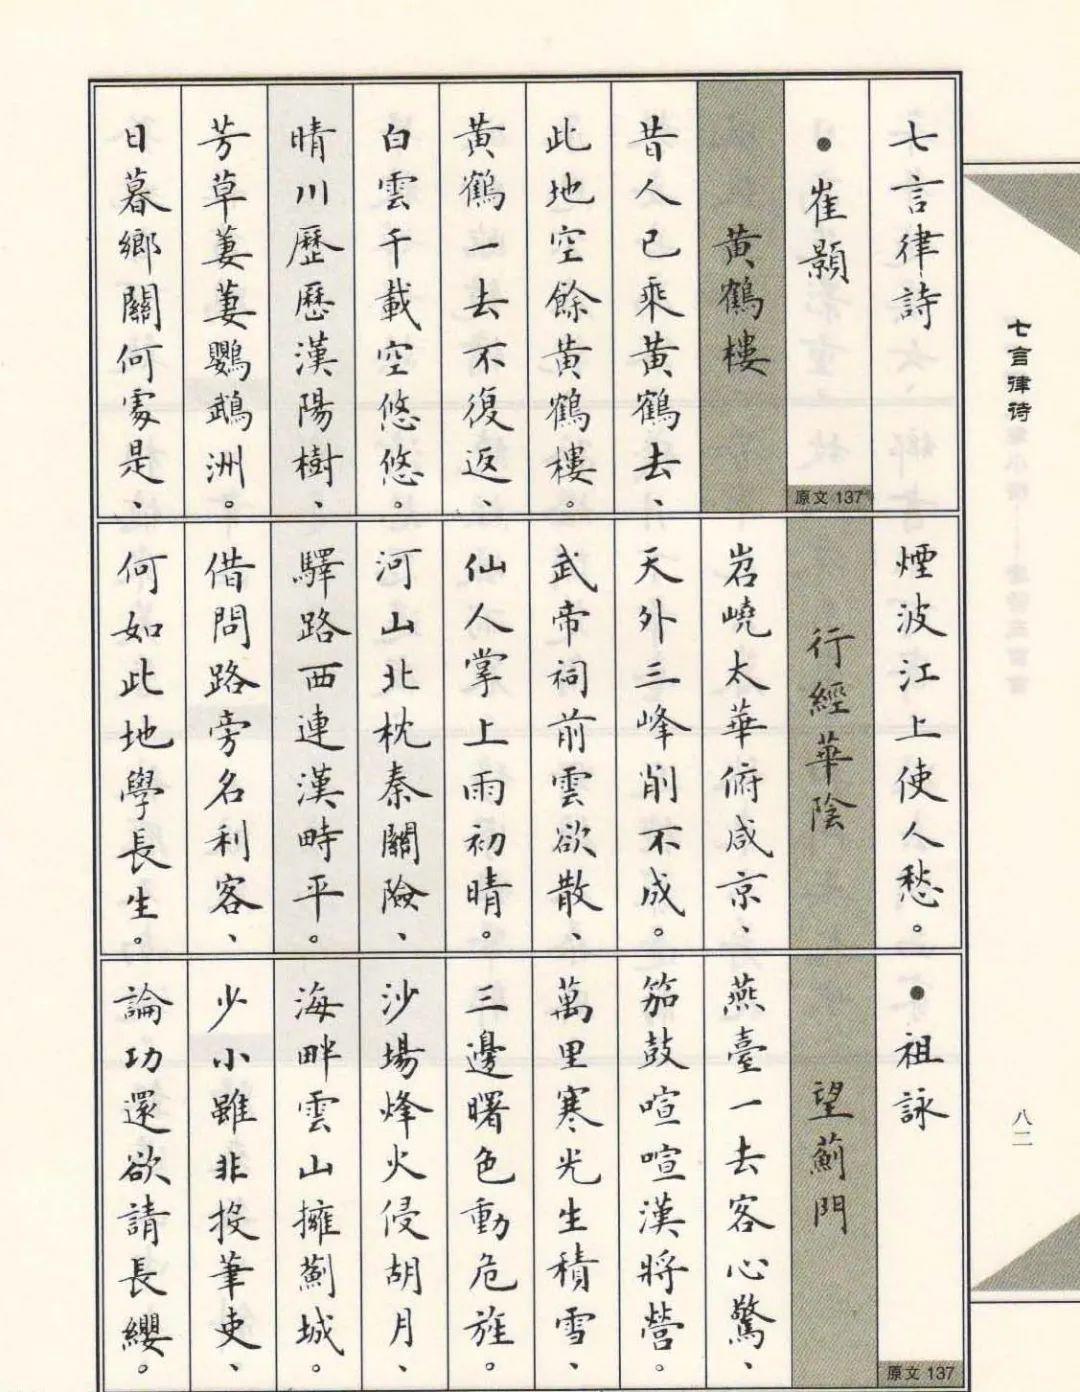 七言律詩
・崔顥
原文 137
黃鶴樓
昔人已乘黃鶴去、
此地空餘黃鶴樓。
黃鶴一去不復返、
白雲千載空悠悠。
晴川歷歷漢陽樹、
芳草萋萋鸚鵡洲。
日暮鄉關何處是、
煙波江上使人愁。
行經華陰
岧嶢太華俯咸京、
天外三峰削不成。
武帝祠前雲欲散、
仙人掌上雨初晴。
河山北枕秦關險、
驛路西連漢畤平。
借問路旁名利客、
何如此地學長生。
・祖詠
原文 137
望薊門
燕臺一去客心驚、
笳鼓喧喧漢將營。
萬里寒光生積雪、
三邊曙色動危旌。
沙場烽火侵胡月、
海畔雲山擁薊城。
少小雖非投筆吏、
論功還欲請長纓。
七言律诗
八二